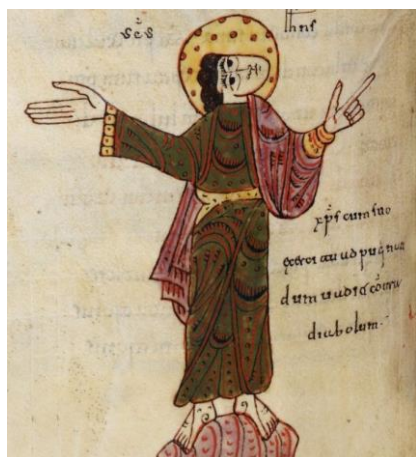 sc̄s ih̄ns
xp̄s cum suo
exercitu ad pugnan
dum uadit cōtra
diabolum